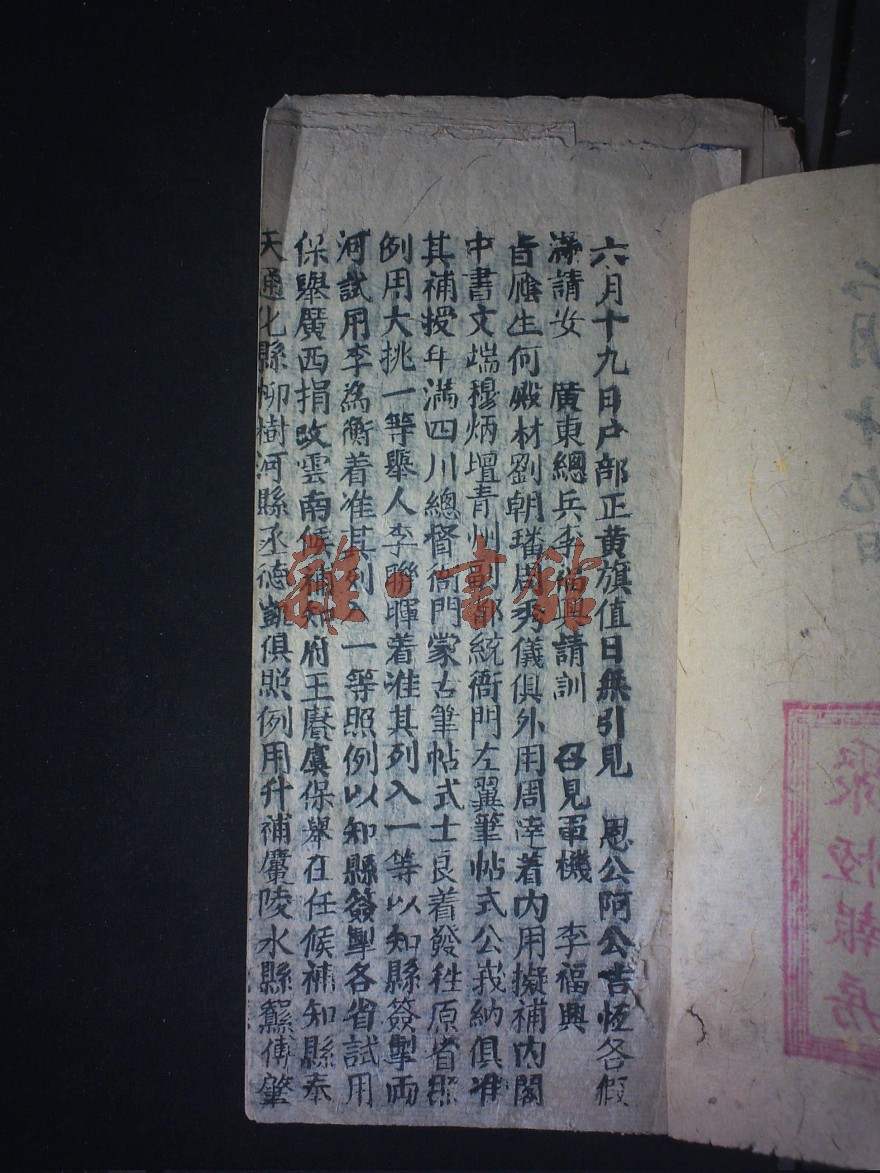 六月十九日戶部正黃旗值日無引見　恩公阿公吉恆各假
滿請安　廣東總兵李福興請訓　召見軍機　李福興
旨廕生何殿材劉朝璠周秀儀俱外用周淩着內用擬補內閣
中書文端穆炳壇青州副都統衙門左翼筆帖式公莪納俱准
其補授年滿四川總督衙門蒙古筆帖式士良着發往原省照
例用大挑一等舉人李聯暉着准其列入一等以知縣簽掣兩
河試用李為衡着准其列入一等照例以知縣簽掣各省試用
保舉廣西捐改雲南候補知府王賡虞保舉在任候補知縣奉
天通化縣柳樹河縣丞德凱俱照例用升補廣陵水縣傅肇
六月十九日
聚恆報房
雜·書館